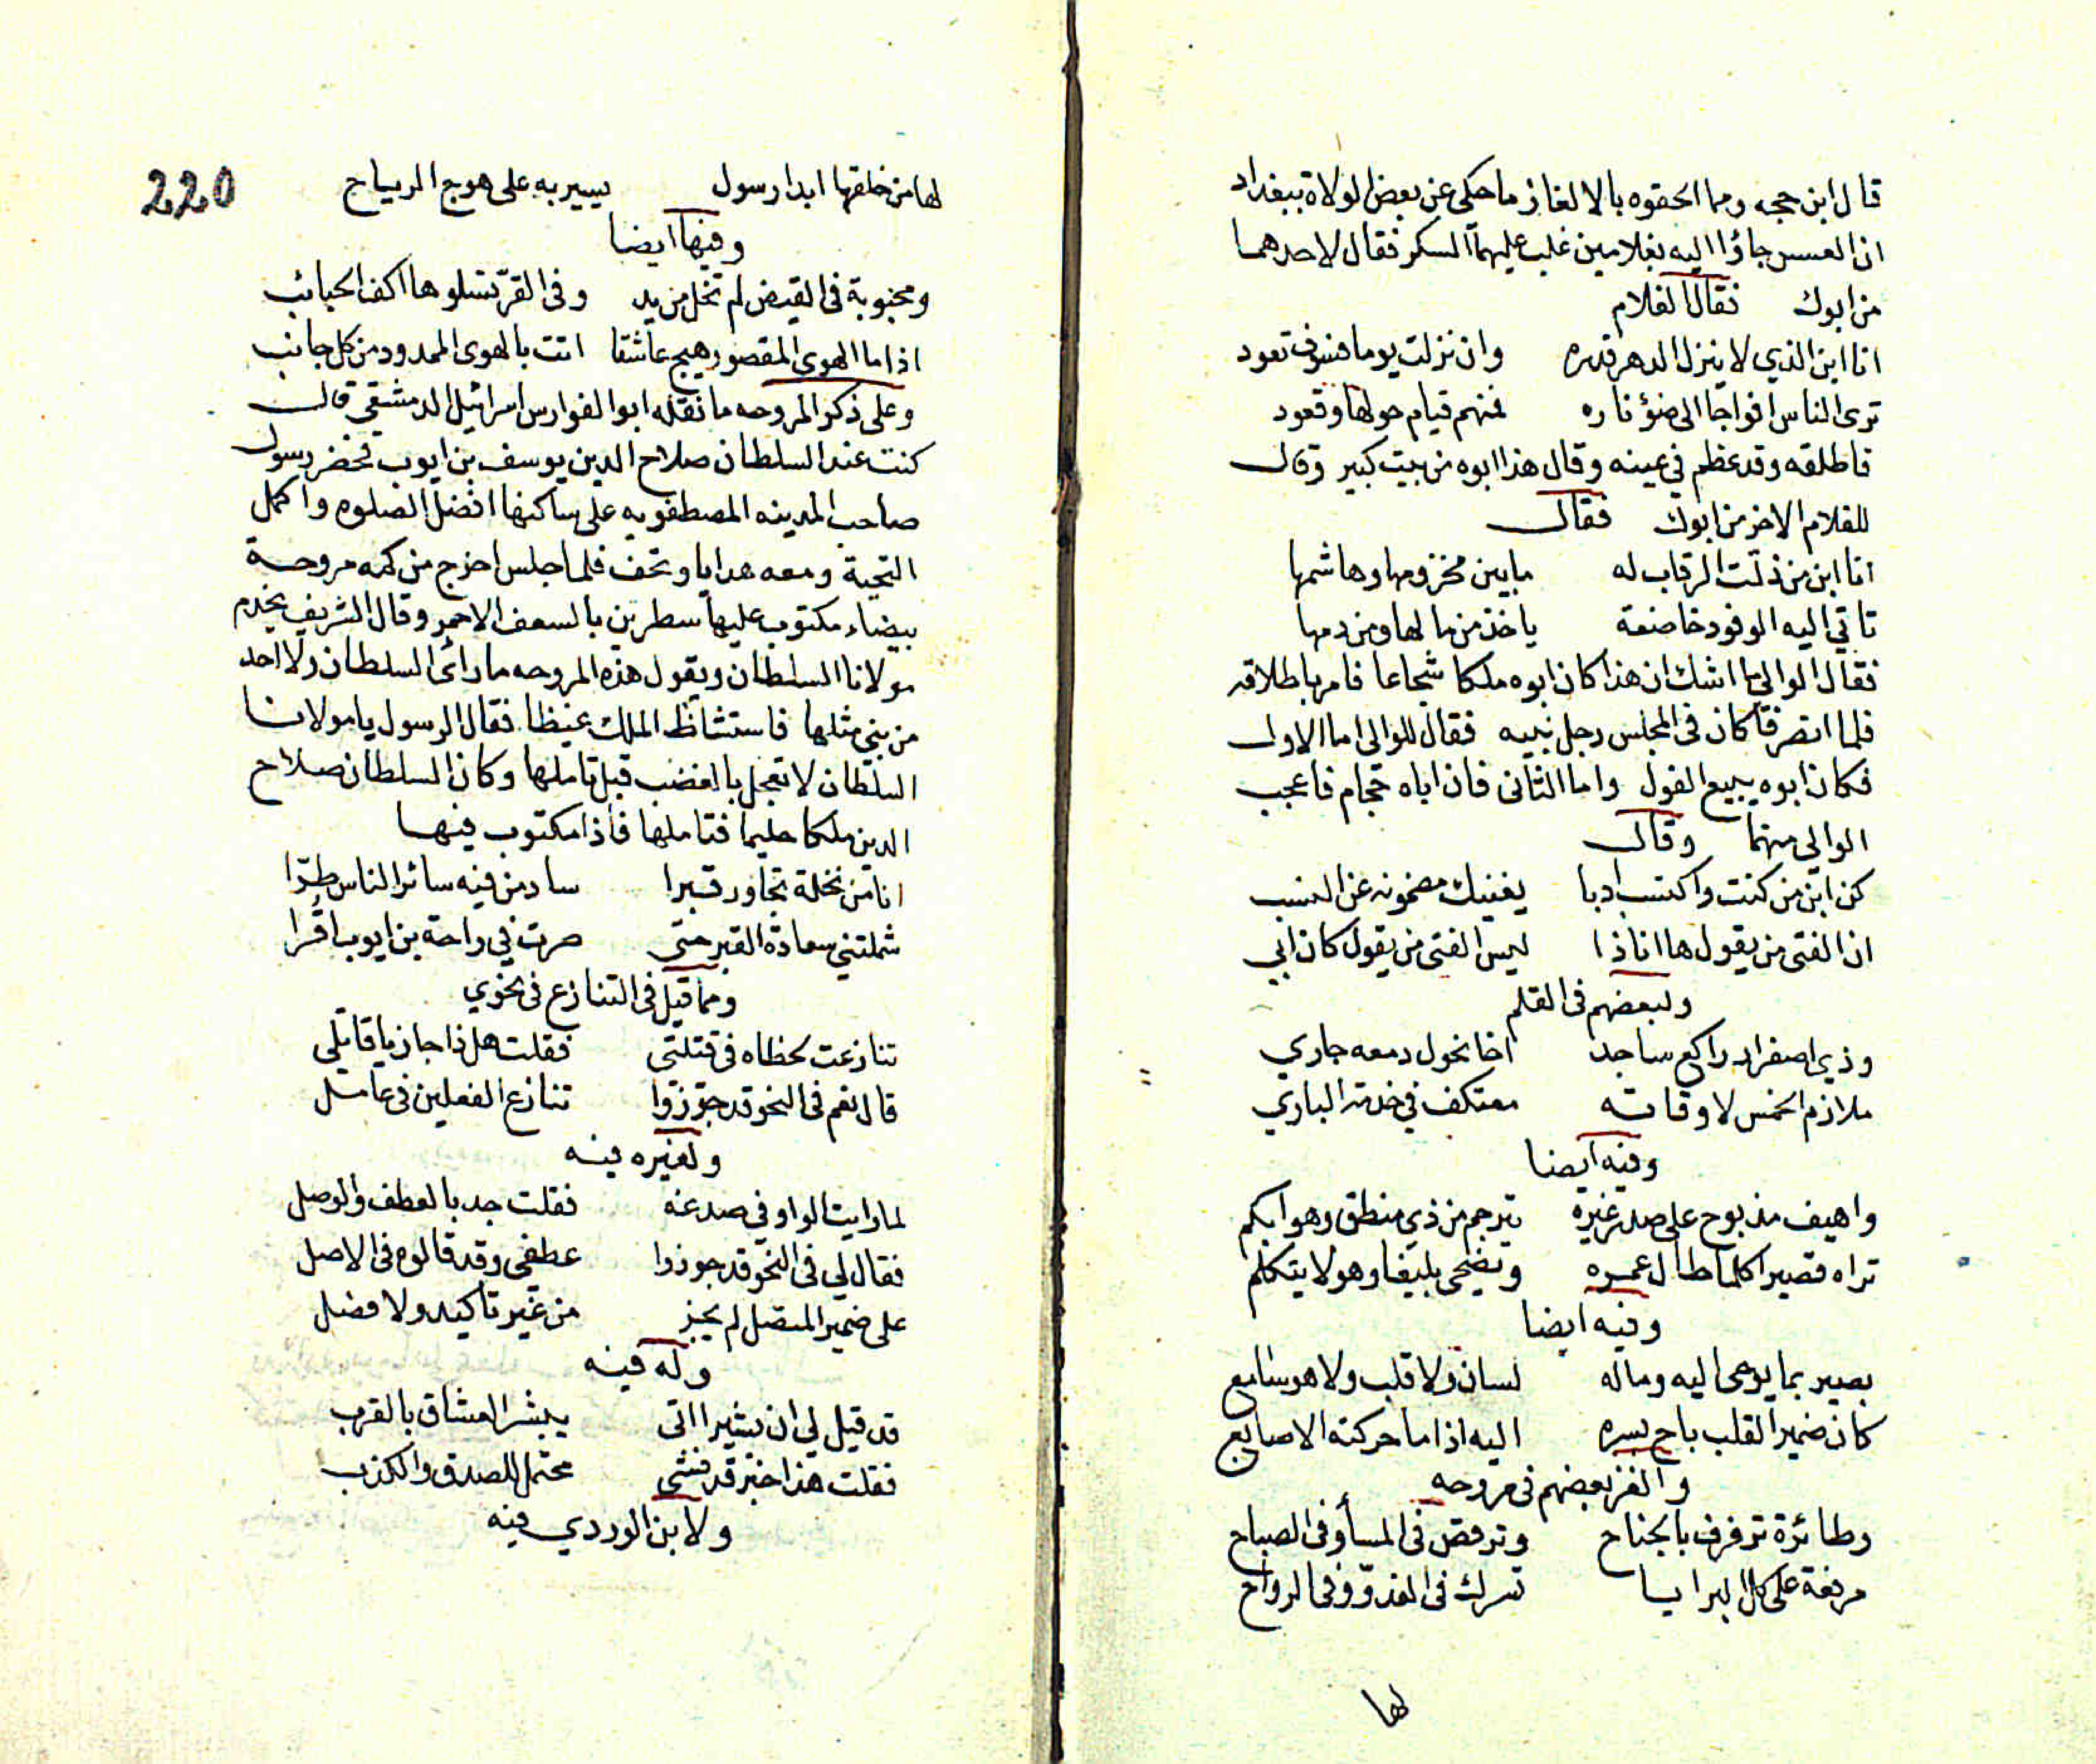 قال ابن حجه ومما الحقوه بالالغاز ما حكى عن بعض الولاة ببغداد
ان العسس جاؤا اليه بغلامين غلب عليهما السكر فقال لاحدهما
من ابوك فقال الغلام
انا ابن الذي لا ينزل الدهر قدره وان نزلت يوما فسوف تعود
ترى الناس افواجا الى ضؤ ناره فمنهم قيام حولها وقعود
فاطلقه وقد عظم في عينه وقال هذا ابوه من بيت كبير وقال
للغلام الاخر من ابوك فقال
انا ابن من ذلت الرقاب له ما بين مخزومها وهاشمها
تاتي اليه الوفود خاضعة ياخذ من مالها ومن دمها
فقال الوالي ما اشك ان هذا كان ابوه ملكا شجاعا فامر باطلاقه
فلما انصرفا كان في المجلس رجل نبيه فقال للوالي اما الاول
فكان ابوه يبيع الفول واما الثاني فان اباه حجام فاعجب
الوالي منهما وقال
كن ابن من كنت واكتسب ادبا يغنيك مضمونه عن النسب
ان الفتى من يقول ها انا ذا ليس الفتى من يقول كان ابي
ولبعضهم في القلم
وذي اصفرار راكع ساجد اخا نحول دمعه جاري
ملازم الخمس لاوقاته معتكف في خدمة الباري
وفيه ايضا
واهيف مذبوح على صدر غيره يترجم من ذي منطق وهو ابكم
تراه قصيرا كلما طال عمره وتضحى بليغا وهو لا يتكلم
وفيه ايضا
بصير بما يوحى اليه وماله لسان ولا قلب ولا هو سامع
كان ضمير القلب باح بسره اليه اذا ما حركته الاصابع
والغز بعضهم في مروحه
وطائرة ترفرف بالجناح وترقص في المسا وفى الصباح
مرفعة على كل البرايا تسرك فى الغدو وفى الرواح
لها
220
لها من خلقها ابدا رسول يسير به على هوج الرياح
وفيها ايضا
ومحبوبة فى القيض لم تخل من يد وفى القر تسلوها اكف الحبائب
اذا ما الهوى المقصور هيج عاشقا اتت بالهوى الممدود من كل جانب
وعلى ذكر المروحه ما نقله ابو الفوارس اسرائيل الدمشقي قال
كنت عند السلطان صلاح الدين يوسف بن ايوب فحضر رسول
صاحب المدينه المصطفويه على ساكنها افضل الصلوه واكمل
التحية ومعه هدايا وتحف فلما جلس اخرج من كمه مروحة
بيضاء مكتوب عليها سطرين بالسعف الاحمر وقال الشريف يخدم
مولانا السلطان ويقول هذه المروحه ما رأى السلطان ولا احد
من بني مثلها فاستشاظ الملك غيظا فقال الرسول يا مولانا
السلطان لا تعجل بالغضب قبل تاملها وكان السلطان صلاح
الدين ملكا حليما فتاملها فاذا مكتوب فيها
انا من نخلة تجاور قبرا ساد من فيه سائر الناس طرا
شملتني سعادة القبر حتى صرت في راحة بن ايوب اقرا
ومما قيل فى التنازع فى نحوي
تنازعت لحظاه فى قتلتي فقلت هل ذا جاز يا قاتلي
قال نعم فى النحو قد جوزوا تنازع الفعلين فى عامل
ولغيره فيه
لما رايت الواو في صدغه فقلت جد بالعطف والوصل
فقال لي فى النحو قد جوزوا عطفي وقد قالوه فى الاصل
على ضمير المتصل لم يجز من غير تاكيد ولا فضل
وله فيه
قد قيل لي ان بشيرا اتى يبشر العشاق بالقرب
فقلت هذا خبر قد فشى محتمل للصدق والكذب
ولابن الوردي فيه